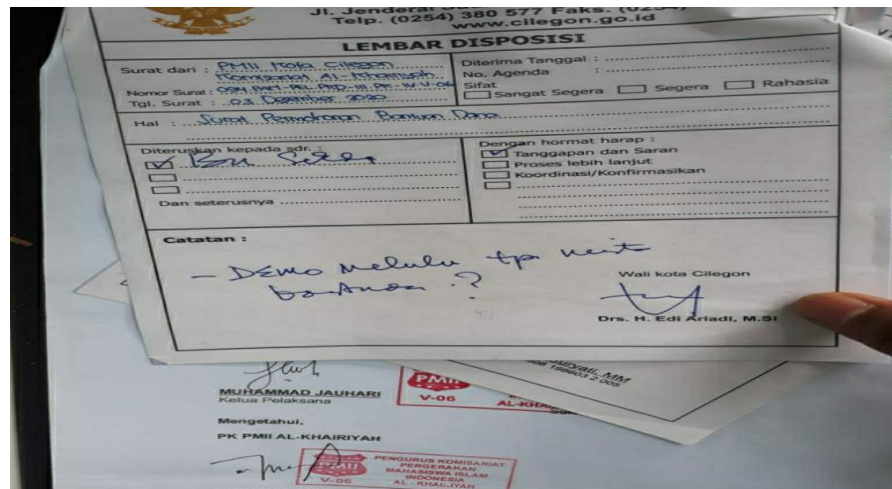 Jl. Jenderal
Telp. (0254) 380 577 Faks. (0254)
www.cilegon.go.id
LEMBAR DISPOSISI
Surat dari : PMII Kota Cilegon
Komisariat Al-Khairiyah
Nomor Surat :
Tgl. Surat : 03 Desember 2020
Diterima Tanggal :
No. Agenda :
Sifat
Sangat Segera Segera Rahasia
Hal : Surat Permohonan Bantuan Dana
Diteruskan kepada sdr. :
Dan seterusnya
Dengan hormat harap :
Tanggapan dan Saran
Proses lebih lanjut
Koordinasi/Konfirmasikan
Catatan :
- Demo melulu tp
Wali kota Cilegon
Drs. H. Edi Ariadi, M.Si
MUHAMMAD JAUHARI
Ketua Pelaksana
PMII
V-06
AL-KHA
Mengetahui,
PK PMII AL-KHAIRIYAH
PMII
V-06
PENGURUS KOMISARIAT
PERGERAKAN
MAHASISWA ISLAM
INDONESIA
AL - KHAIRIYAH